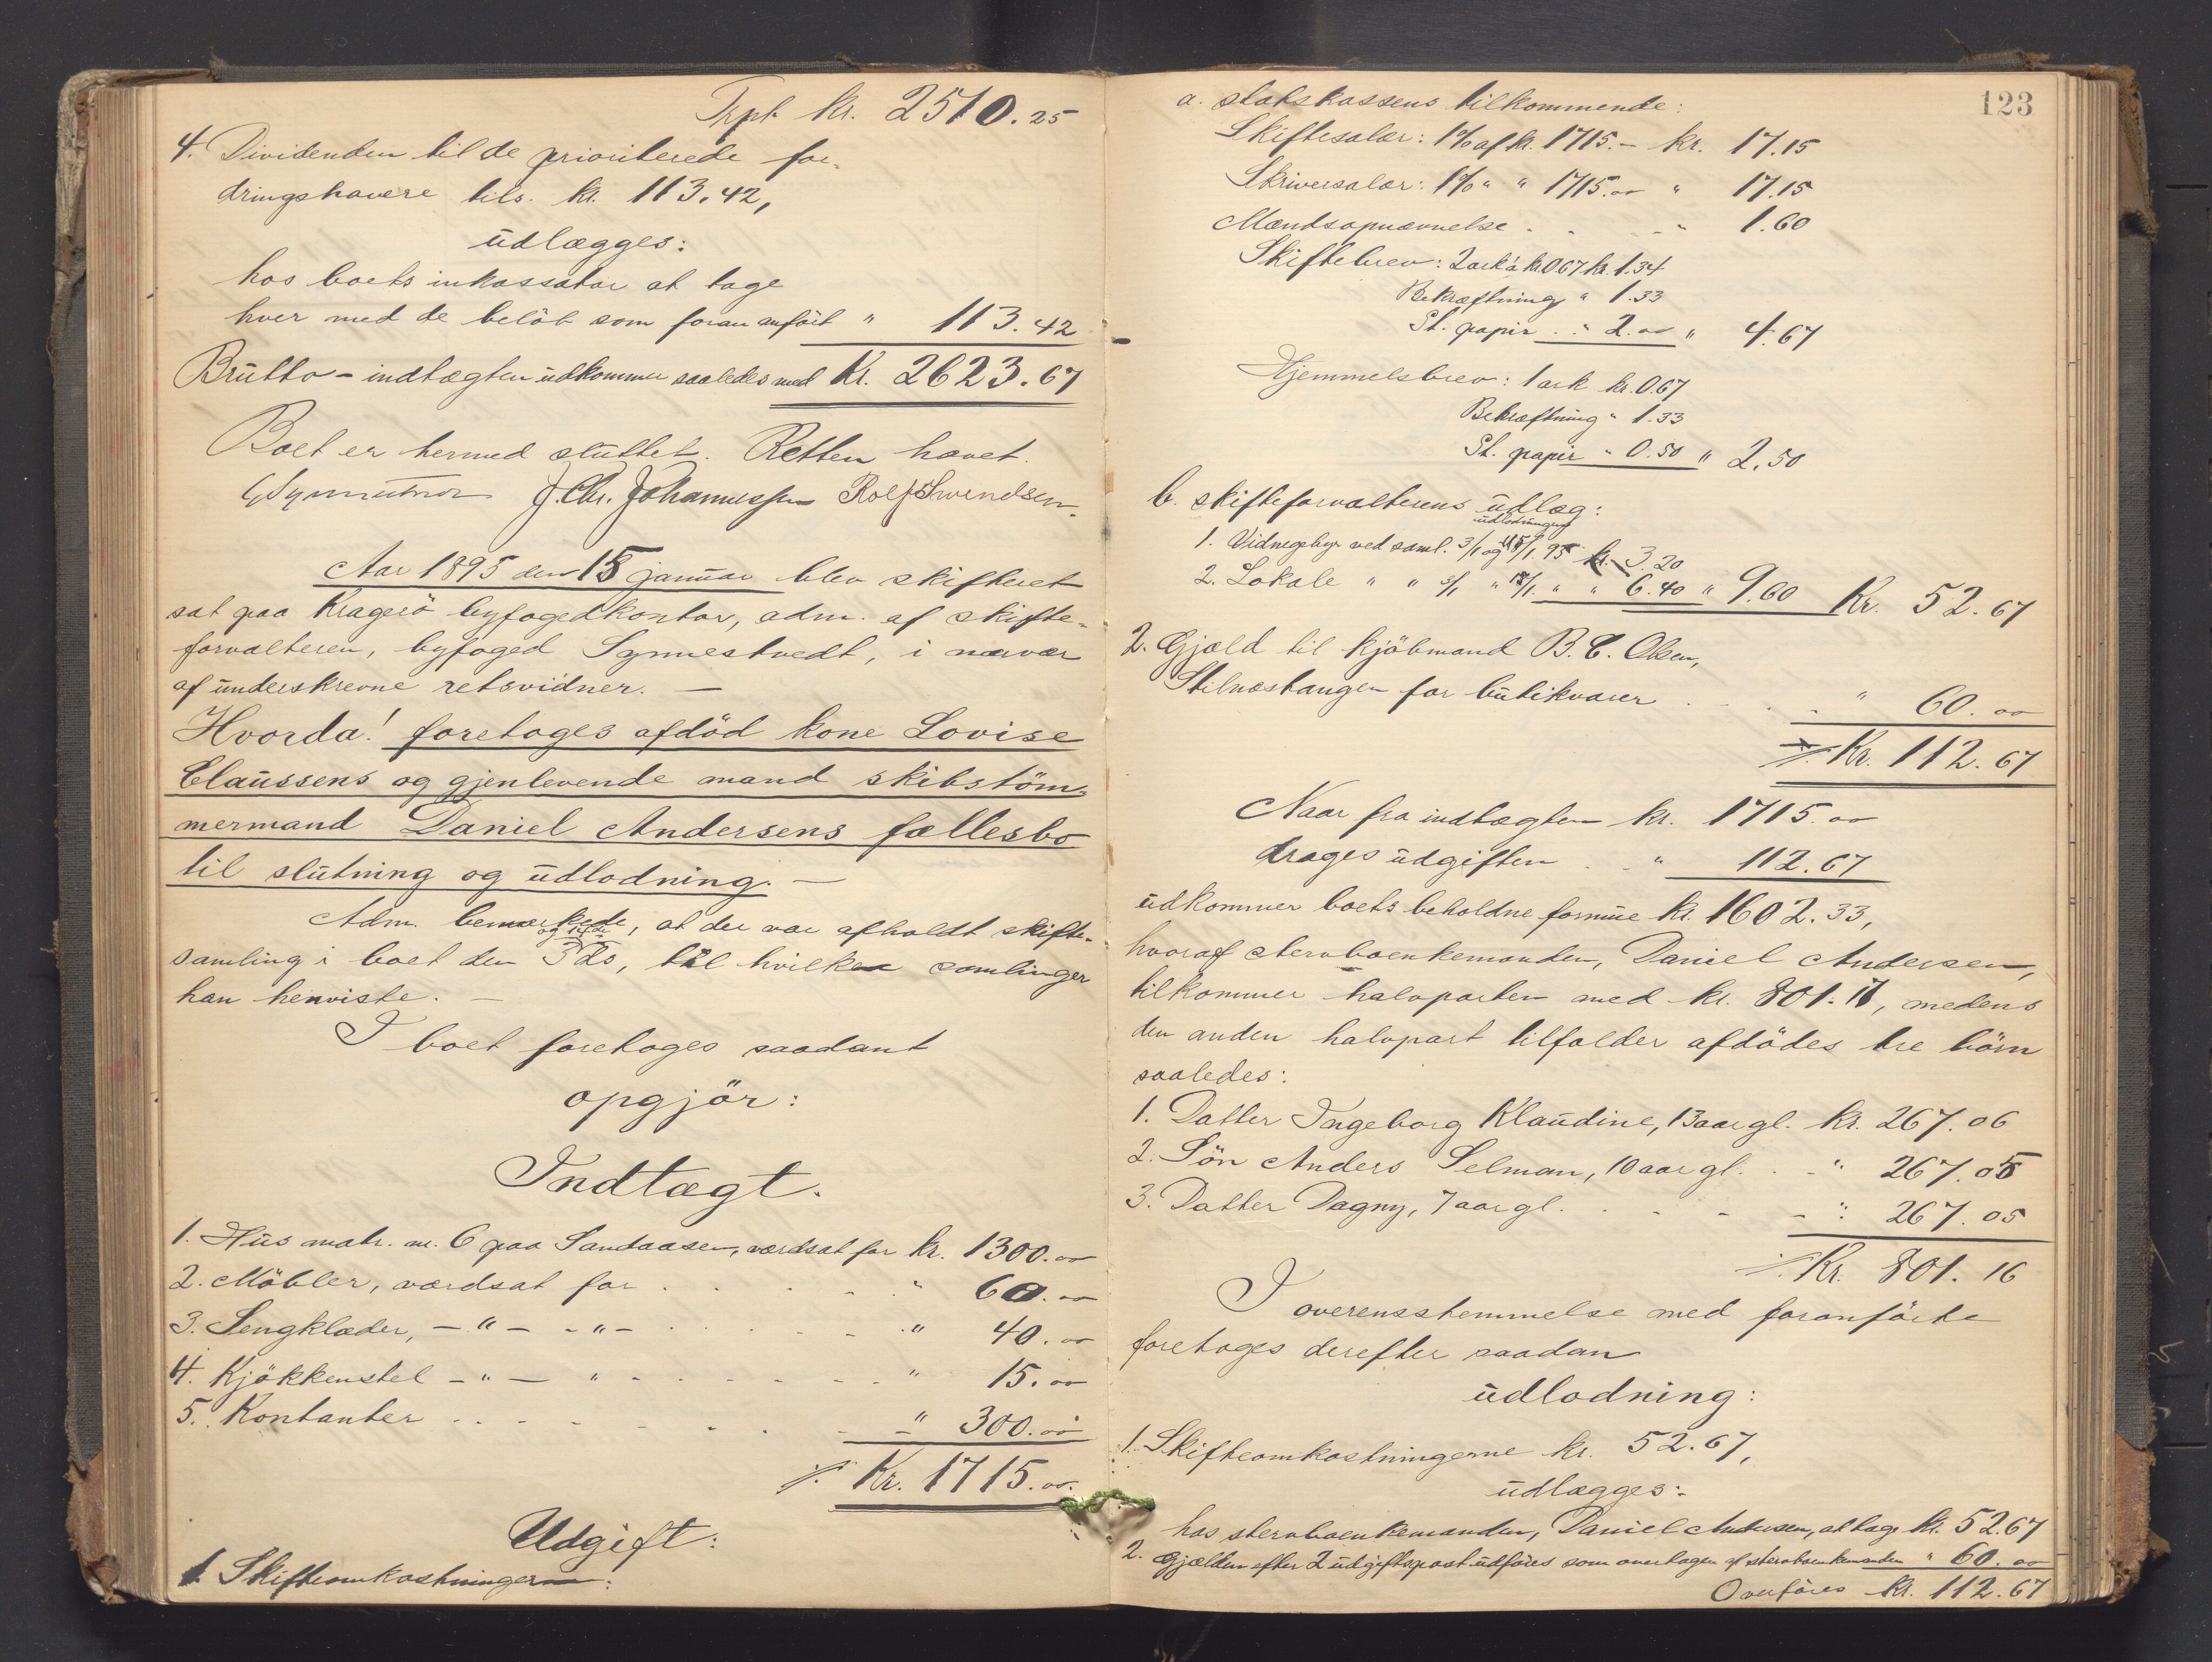 Trpt. kr. 2510.25
4. Dividenden til de prioriterede for-
dringshavere tils. kr. 113.42,
udlægges:
hos boets inkassator at tage
hver med de beløb som foran anført " 113.42
Brutto-indtægten udkommer saaledes med kr. 2623.67
Boet er hermed sluttet. Retten hævet.
J. Chr. Johannessen Rolf Svendsen.
Aar 1895 den 15 januar blev skifteret
sat paa Kragerö byfogedkontor, adm. af skifte-
forvalteren, byfoged Synnestvedt, i nærvær
af underskrevne retsvidner. —
Hvorda! foretoges afdöd kone Lovise
Claussens og gjenlevende mand skibstöm-
mermand Daniel Andersens fællesbo
til slutning og udlodning. —
Adm. bemærkede, at der var afholdt skifte-
samling i boet den 3 ds, til hvilken samlinger
han henviste. —
I boet foretoges saadant
opgjör:
Indtægt.
1. Hus matr. nr. 6 paa Sandaasen, værdsat for kr. 1300.00
2. Möbler, værdsat for . . . " 60.00
3. Sengklæder, — " — - " - . . . " 40.00
4. Kjökkenstel - " — " - - - - " 15.00
5. Kontanter . . - - - - " 300.00
Kr. 1715.00.
Udgift:
1. Skifteomkostningerne:
123
a. statskassens tilkommende:
Skiftesalær: 1% af kr. 1715.- kr. 17.15
Skriversalær: 1% " " 1715.00 " 17.15
Mandsopnævnelse . . - " 1.60
Skiftebrev: 2 ark á kr. 0.67 kr. 1.34
Bekræftning " 1.33
St. papir . " 2.00 " 4.67
Hjemmelsbrev: 1 ark kr. 0.67
Bekræftning " 1.33
St. papir " 0.50 " 2.50
b. skifteforvalterens udlæg:
udlodningen
1. Vidnegebyr ved saml. 3/1 og 15/1 95 kr. 3.20
2. Lokale " " 3/1 " 15/1 " " 6.40 " 9.60 Kr. 52.67
2. Gjæld til kjöbmand B. C. Olsen,
Stilnestangen for butikvarer . . . " 60.00
Kr. 112.67
Naar fra indtægten kr. 1715.00
drages udgiften . . " 112.67
udkommer boets beholdne formue kr. 1602.33,
hvoraf stervboenkemanden, Daniel Andersen,
tilkommer halvparten med kr. 801.17, medens
den anden halvpart tilfalder afdödes tre börn
saaledes:
1. Datter Ingeborg Klaudine, 13 aar gl. kr. 267.06
2. Sön Anders Selman, 10 aar gl. . - " 267.05
3. Datter Dagny, 7 aar gl. . . - - - " 267.05
Kr. 801.16
I overensstemmelse med foranförte
foretoges derefter saadan
udlodning:
1. Skifteomkostningerne kr. 52.67,
udlægges:
hos stervboenkemanden, Daniel Andersen, at tage kr. 52.67
2. Gjælden efter 2 udgiftspost udföres som overtagen af stervboenkemanden " 60.00
Overföres kr. 112.67